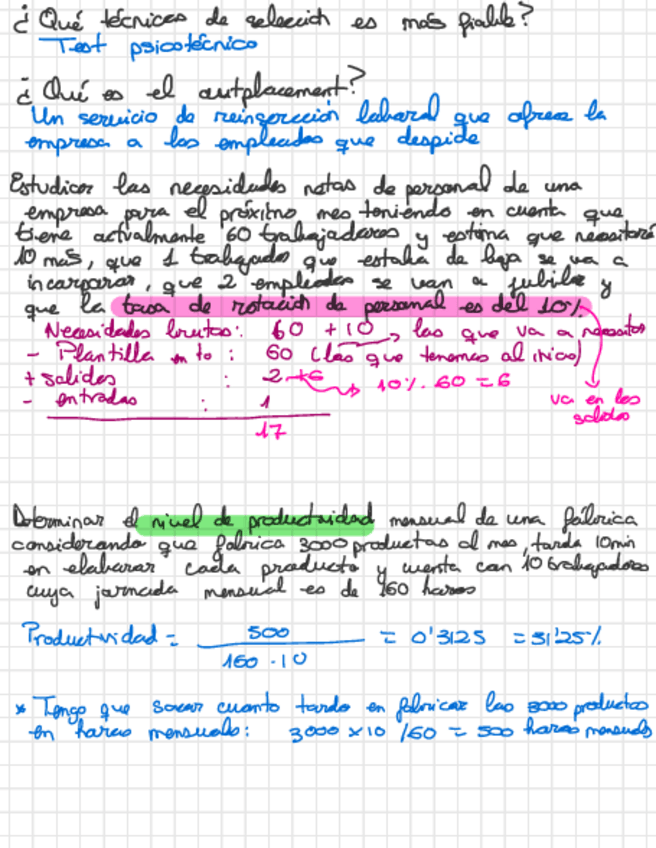 ¿Qué técnicas de selección es más fiable?
Test psicotécnico
¿Qué es el outplacement?
Un servicio de reinserción laboral que ofrece la
empresa a los empleados que despide
Estudiar las necesidades netas de personal de una
empresa para el próximo mes teniendo en cuenta que
tiene actualmente 60 trabajadores y estima que necesitará
10 más, que 1 trabajador que estaba de baja se va a
incorporar, que 2 empleados se van a jubilar y
que la tasa de rotación de personal es del 10%
Necesidades brutas: 60 + 10 → las que va a necesitar
- Plantilla : 60 (las que tenemos al inicio)
+ salidas : 2 + 6 → 10% . 60 = 6
- entradas : 1
va en las
salidas
17
Determinar el nivel de productividad mensual de una fábrica
considerando que fabrica 3000 productos al mes, tarda 10min
en elaborar cada producto y cuenta con 10 trabajadores
cuya jornada mensual es de 160 horas
Productividad = 500 / 160 · 10 = 0'3125 = 31'25%
* Tengo que sacar cuanto tardo en fabricar los 3000 productos
en horas mensuales: 3000 x 10 / 60 = 500 horas mensuales